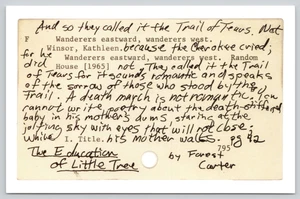 And so they called it the Trail of Tears. Not
F Wanderers eastward, wanderers west.
Winsor, Kathleen. because the Cherokee cried;
for he Wanderers eastward, wanderers west. Random
did House [1965] not. They called it the Trail
of Tears for it sounds romantic and speaks
of the sorrow of those who stood by the
Trail. A death march is not romantic. You
cannot write poetry about the death-stiffened
baby in his mother's arms, staring at the
jolting sky with eyes that will not close;
while I. Title. his mother walks. pg 42
795
The Education
of Little Tree
by Forest
Carter